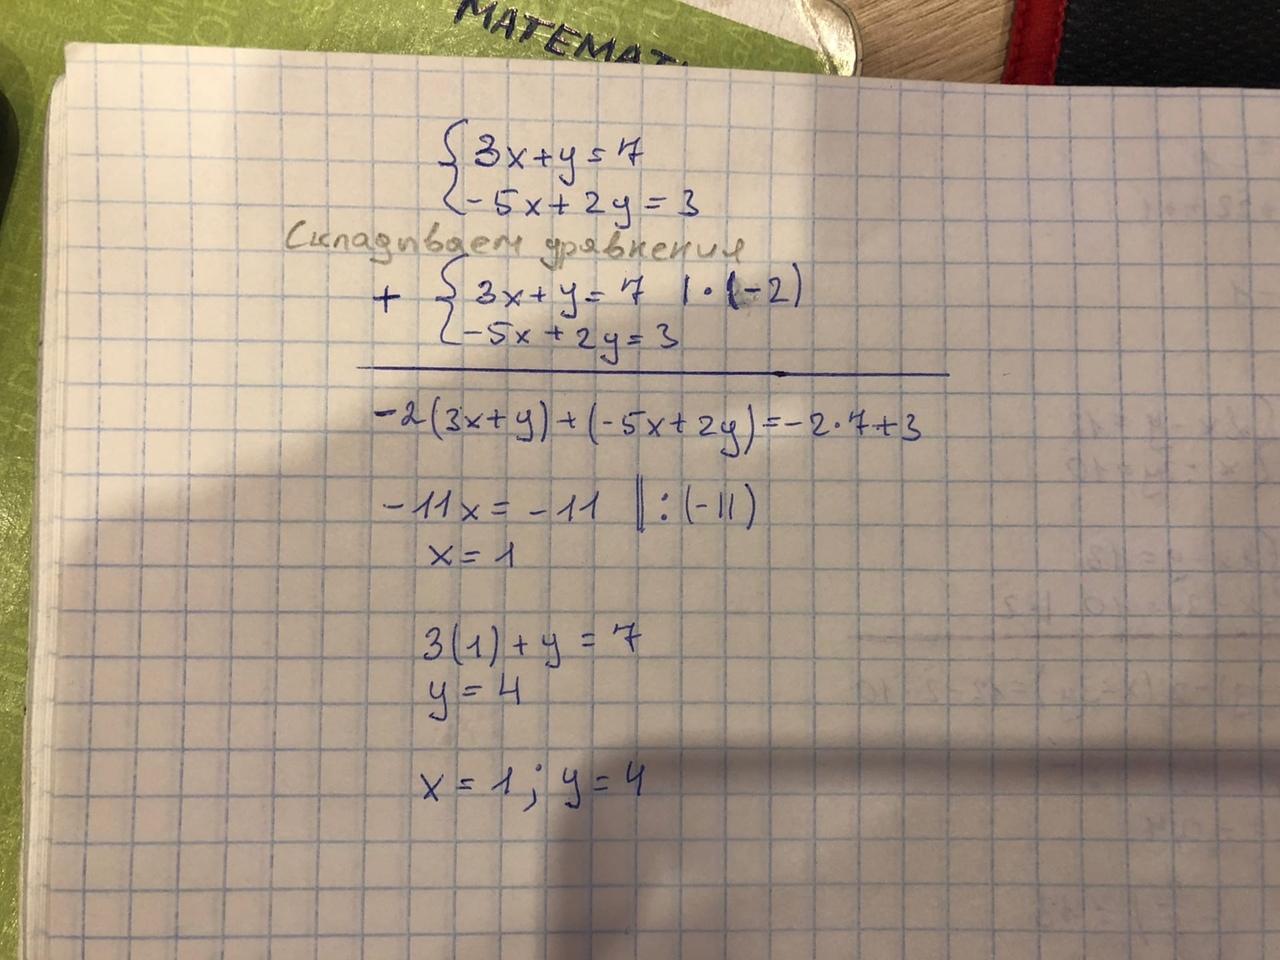 МАТЕМАТ
{3x+y=7
{-5x+2y=3
Складываем уравнения
+ {3x+y=7 |·(-2)
{-5x+2y=3
-2(3x+y)+(-5x+2y)=-2·7+3
-11x=-11 ||:(-11)
x=1
3(1)+y=7
y=4
x=1; y=4